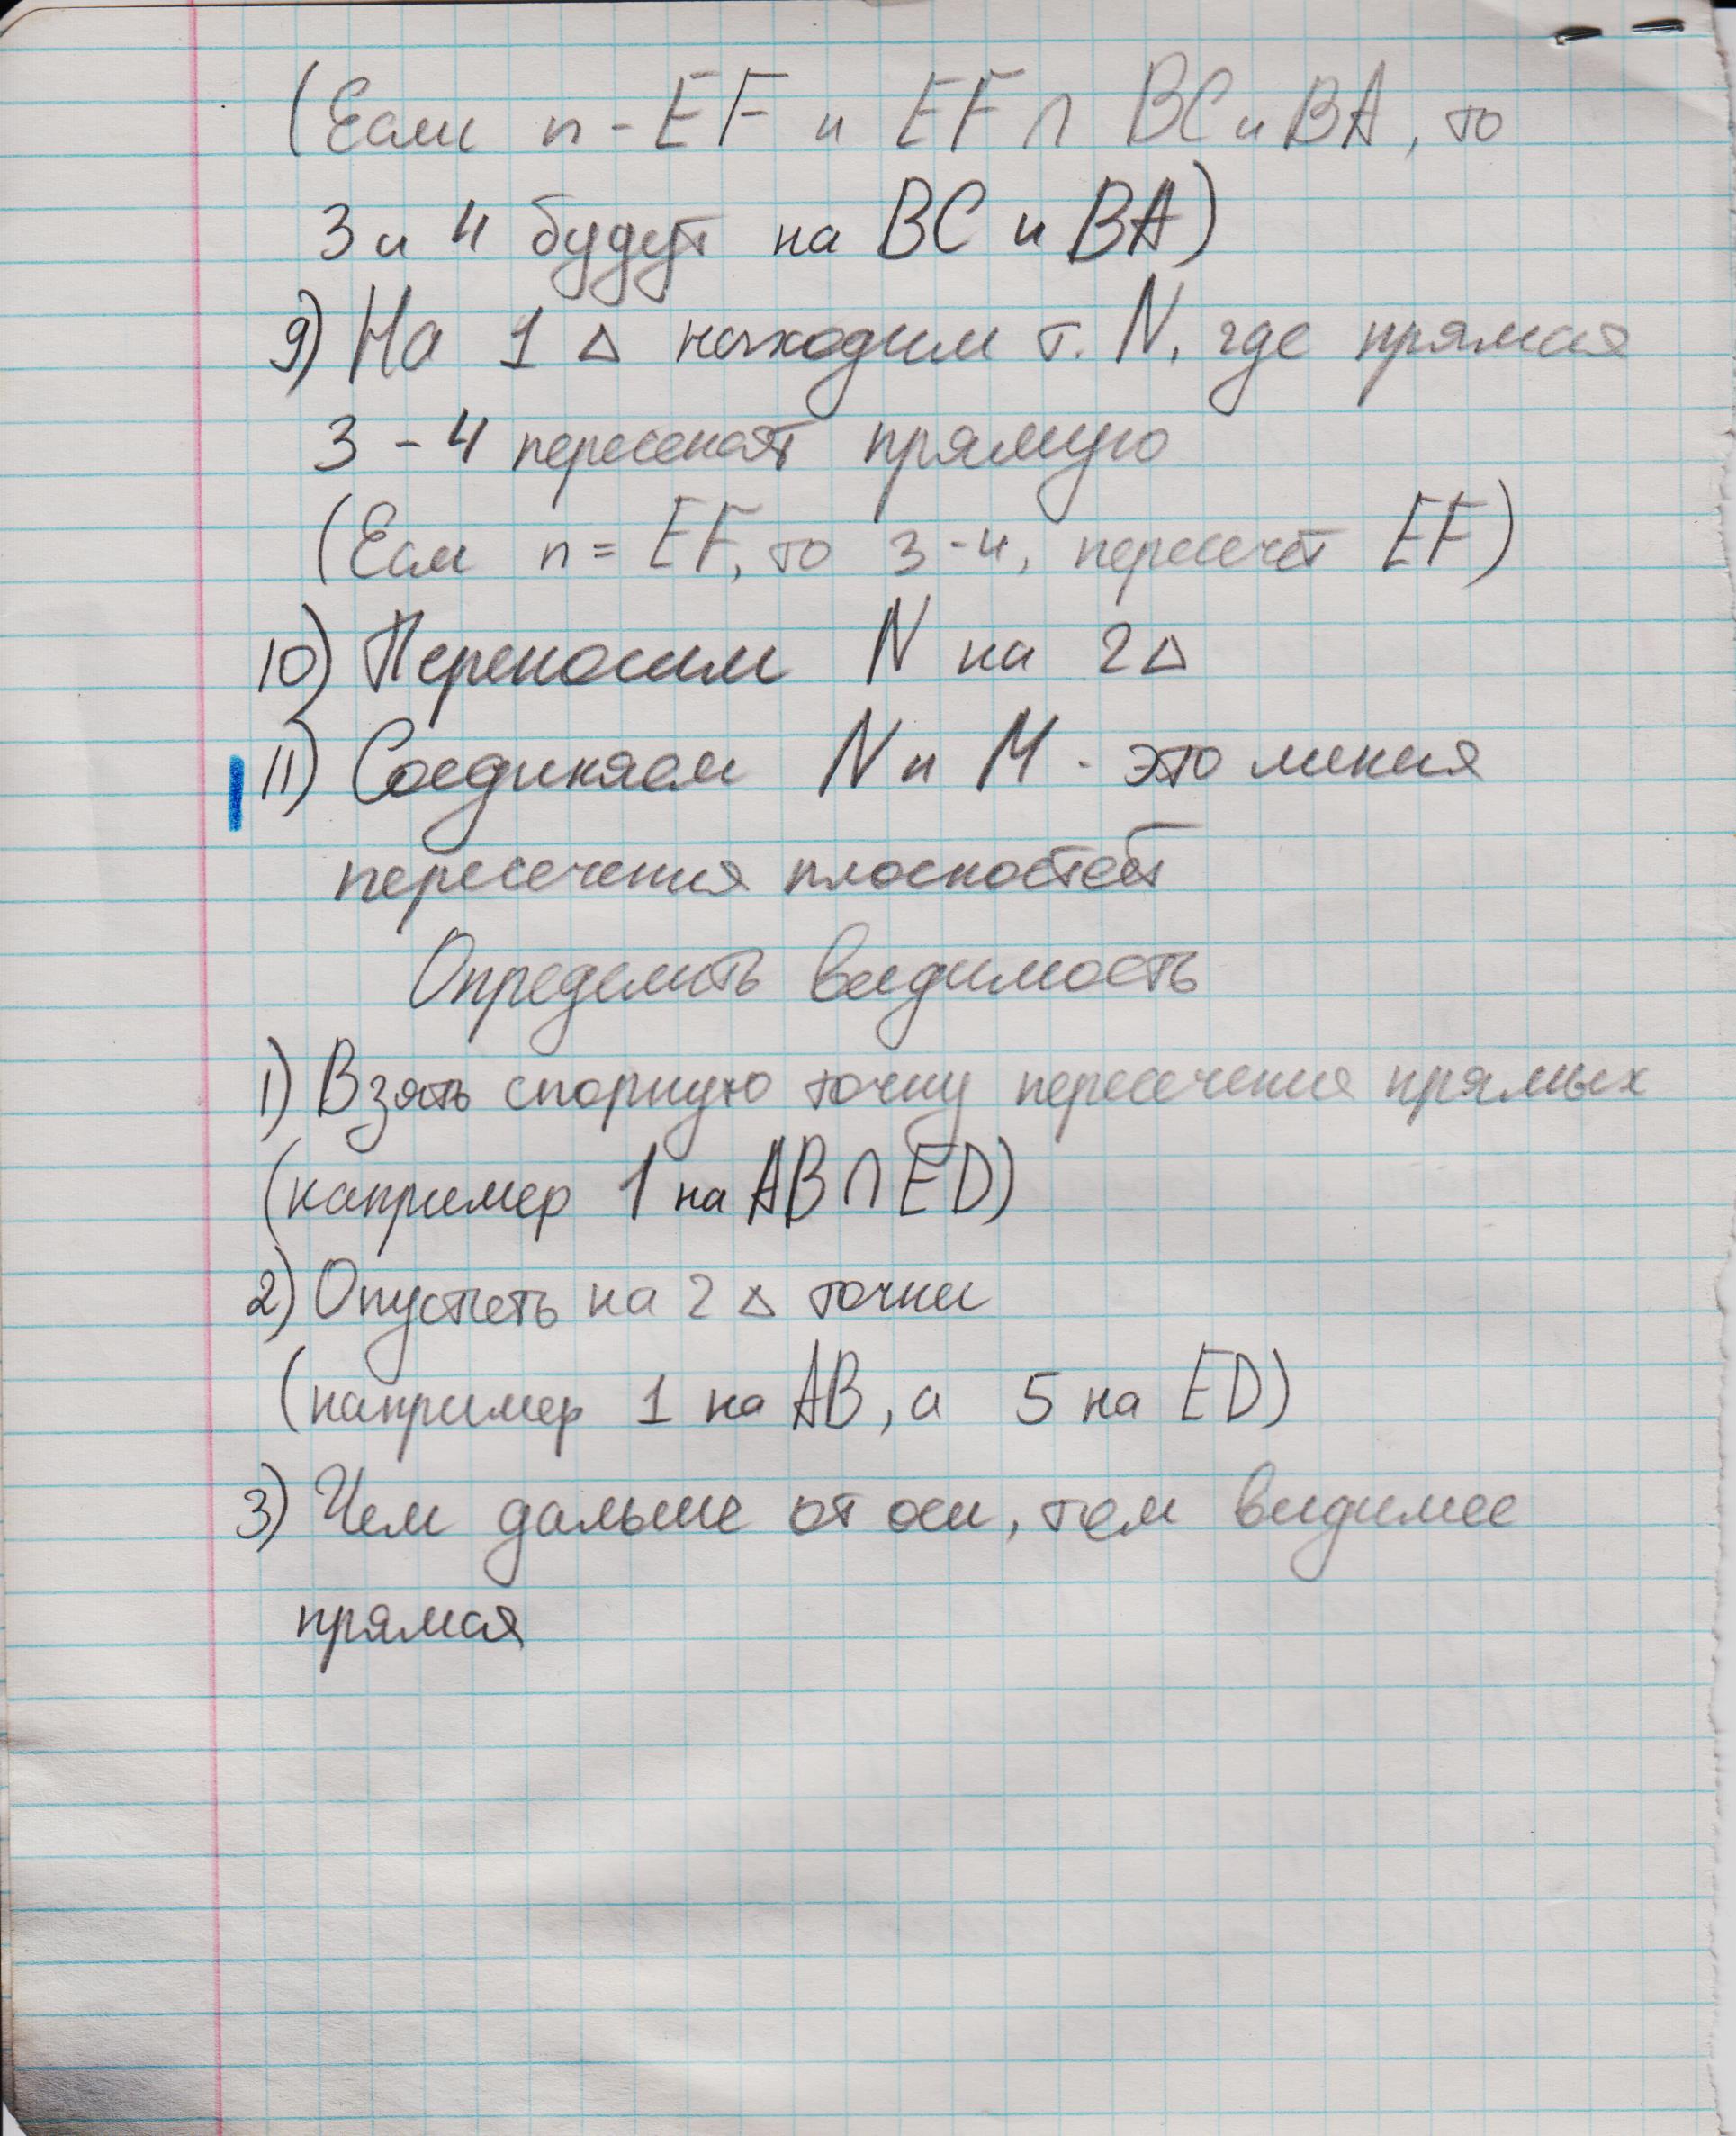 (Если n - EF и EF ∩ BC и BA, то
3 и 4 будут на BC и BA)
9) На 1 △ находим т. N, где прямая
3 - 4 пересекает прямую
(Если n = EF, то 3-4, пересечёт EF)
10) Переносим N на 2△
11) Соединяем N и M - это линия
пересечения плоскостей
Определить видимость
1) Взять спорную точку пересечения прямых
(например 1 на AB ∩ ED)
2) Опустить на 2 △ точки
(например 1 на AB, а 5 на ED)
3) Чем дальше от оси, тем видимее
прямая